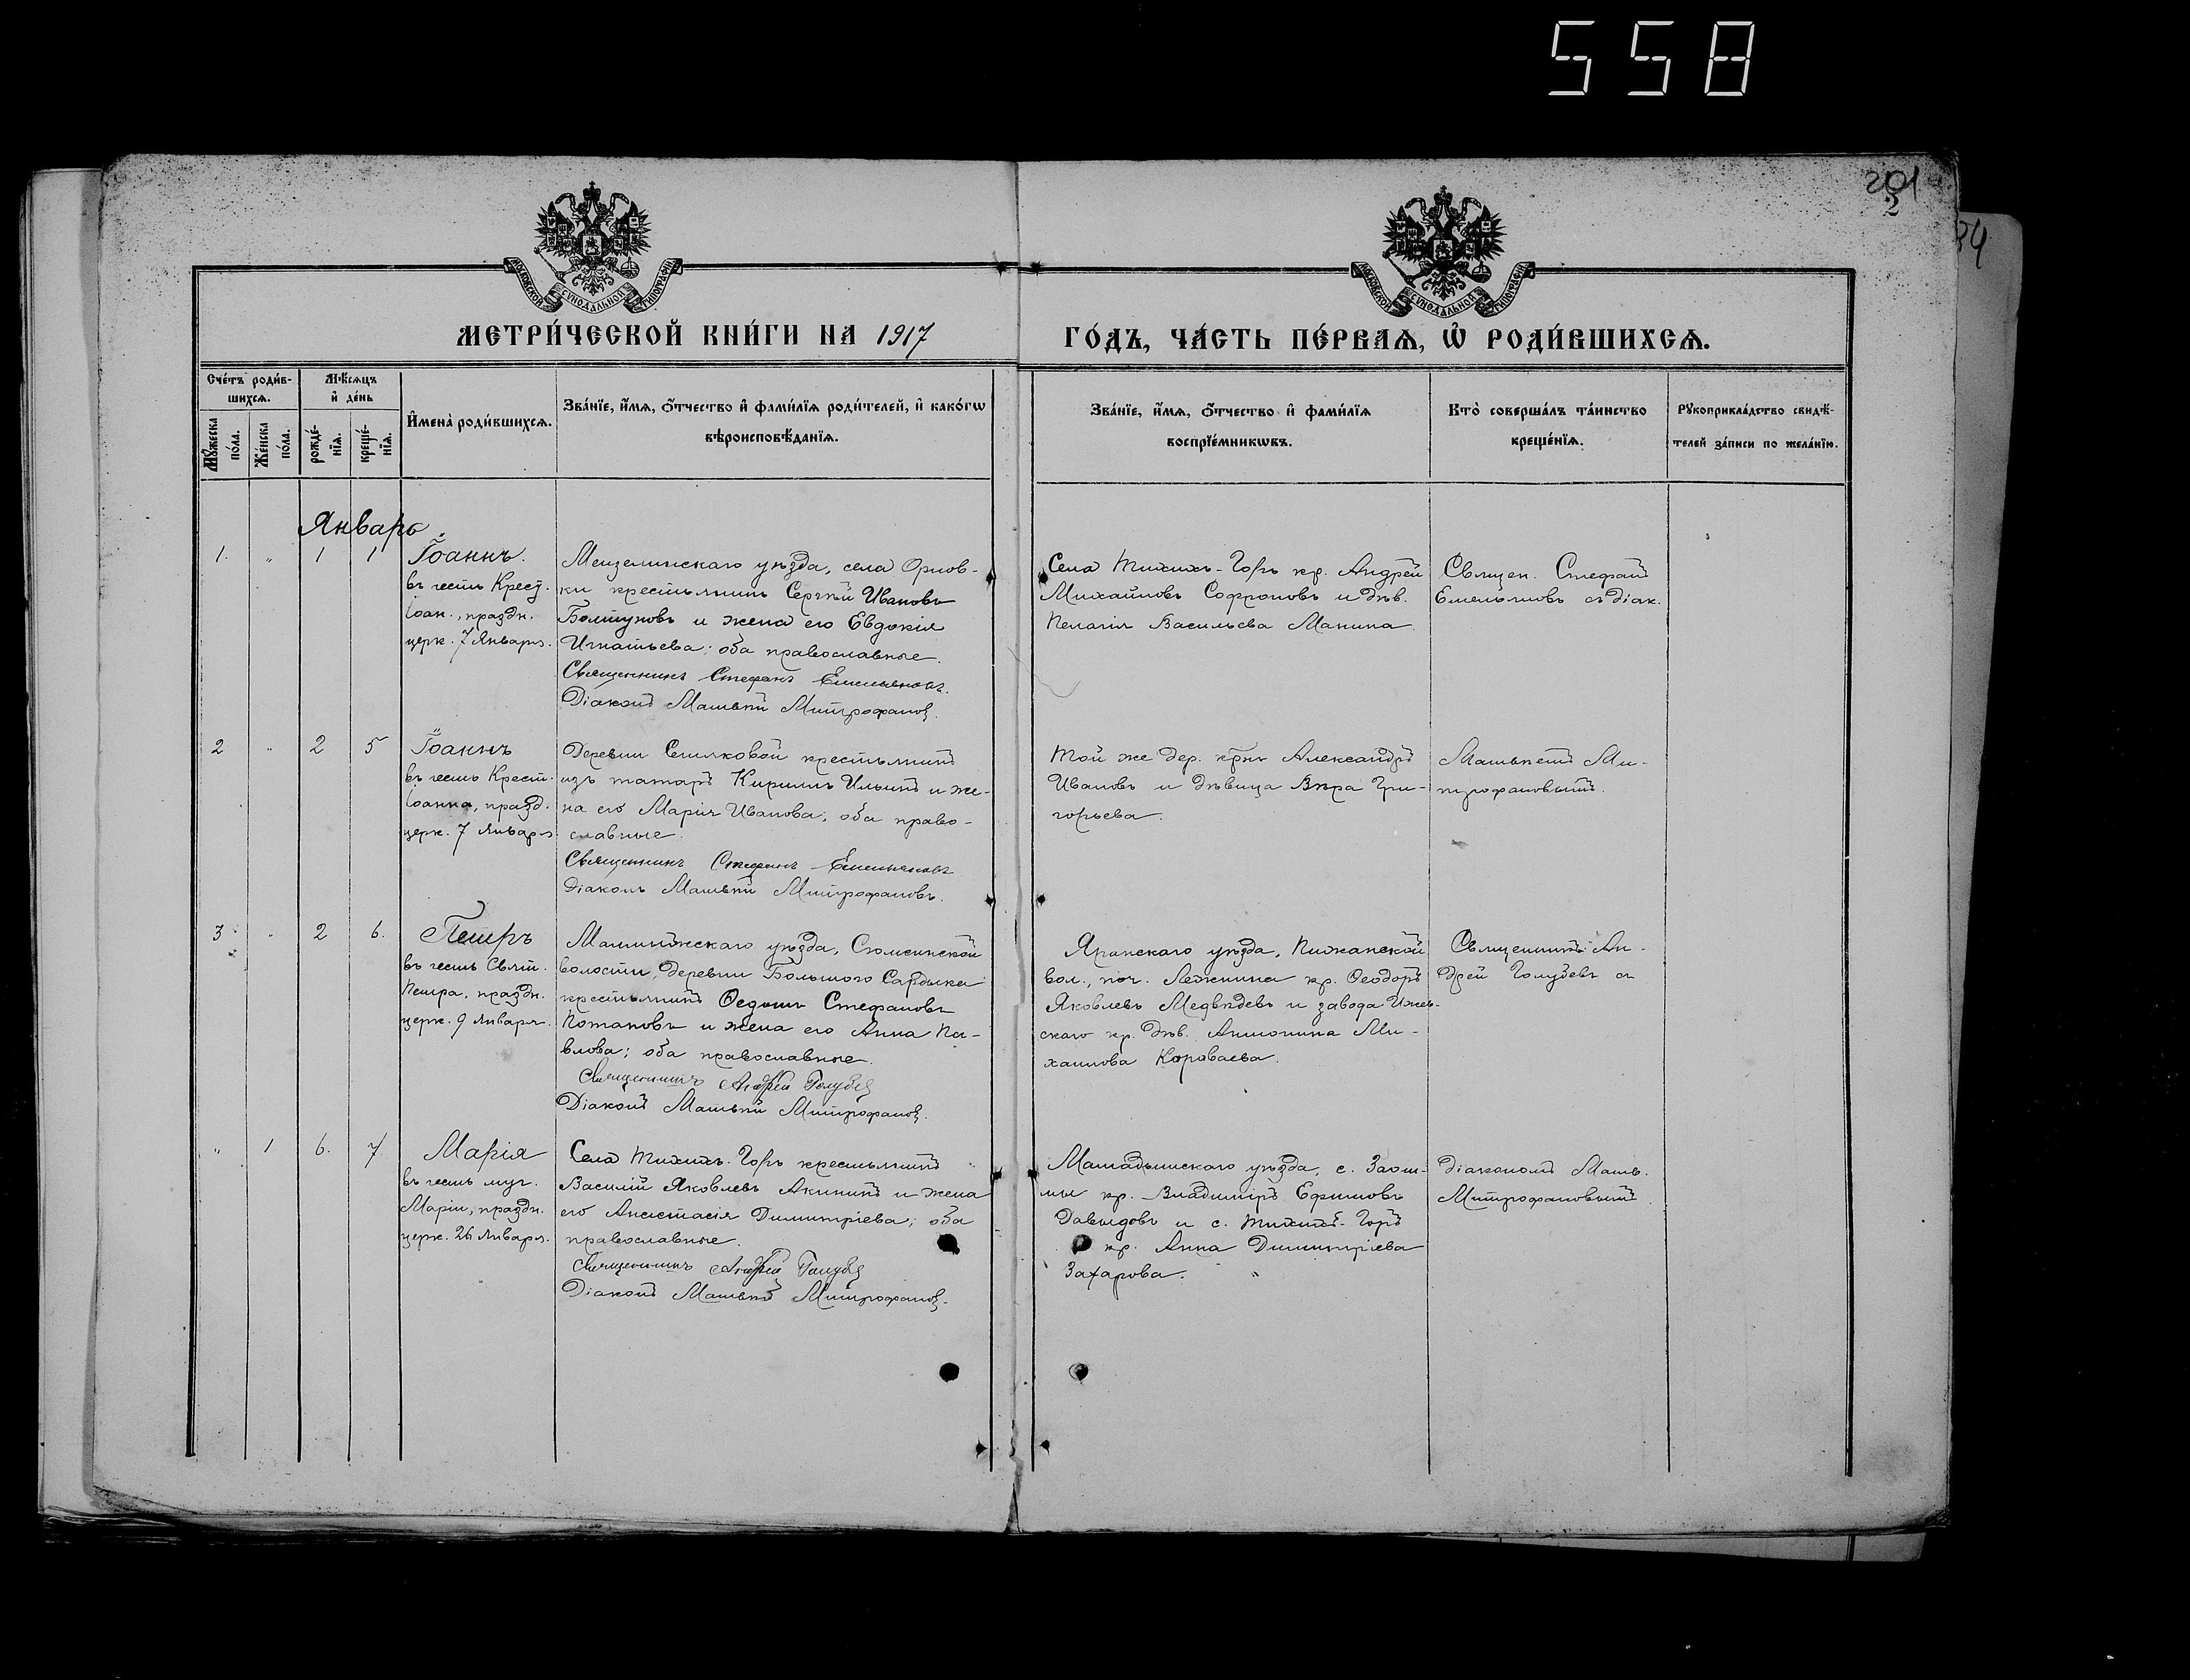 558
201
2
34
МОСКОВСКОЙ СѴНОДАЛЬНОЙ ТИПОГРАФІИ
МОСКОВСКОЙ СѴНОДАЛЬНОЙ ТИПОГРАФІИ
МЕТРИ́ЧЕСКОЙ КНИ́ГИ НА 1917
ГО́ДЪ, ЧА́СТЬ ПЕ́РВАѦ, Ѽ РОДИ́ВШИХСѦ.
Сче́тъ роди́в-
шихсѧ.
Мꙋ́жеска по́ла.
Же́нска по́ла.
Мѣ́сѧцъ
и҆ де́нь
рожде́-
нїѧ.
креще́-
нїѧ.
И҆мена̀ роди́вшихсѧ.
Зва́нїе, и҆́мѧ, ѻ҆́тчество и҆ фами́лїѧ роди́телей, и҆ како́гѡ
вѣроисповѣ́данїѧ.
Зва́нїе, и҆́мѧ, ѻ҆́тчество и҆ фами́лїѧ
воспрїе́мникѡвъ.
Кто̀ соверша́лъ та́инство
креще́нїѧ.
Рꙋкоприкла́дство свидѣ́-
телей за́писи по жела́нїю.
Январь.
1. " 1 1 Іоаннъ.
въ честь Крест.
Іоан., праздн.
церк. 7 Января.
Мензелинскаго уѣзда, села Орлов-
ки крестьянинъ Сергѣй Ивановъ
Болтуновъ и жена его Евдокія
Игнатьева; оба православные.
Священникъ Стефанъ Емельяновъ.
Діаконъ Матвѣй Митрофановъ.
Села Тихихъ-Горъ кр. Андрей
Михайловъ Софроновъ и дѣв.
Пелагія Васильева Макина.
Священ. Стефанъ
Емельяновъ съ діак.
2 " 2 5 Іоаннъ
въ честь Крест.
Іоанна, празд.
церк. 7 Января
Деревни Сетяковой крестьянинъ
изъ татаръ Кириллъ Ильинъ и же-
на его Марія Иванова; оба право-
славные.
Священникъ Стефанъ Емельяновъ
Діаконъ Матвѣй Митрофановъ.
Той же дер. крнъ Александръ
Ивановъ и дѣвица Вѣра Гри-
горьева.
Матвѣемъ Ми-
трофановымъ.
3 " 2 6. Петръ
въ честь Свят.
Петра, праздн.
церк. 9 Января.
Малмыжскаго уѣзда, Сюмсинской
волости, деревни Большого Сардыка
крестьянинъ Ѳедотъ Стефановъ
Потаповъ и жена его Анна Па-
влова; оба православные.
Священникъ Андрей Голубевъ
Діаконъ Матвѣй Митрофановъ.
Яранскаго уѣзда, Пижанской
вол., поч. Лежнина кр. Ѳеодоръ
Яковлевъ Медвѣдевъ и завода Ижев-
скаго кр. дѣв. Антонина Ми-
хаилова Короваева.
Священникъ Ан-
дрей Голубевъ съ
" 1 6. 7. Марія
въ честь муч.
Маріи, праздн.
церк. 26 Января.
Села Тихихъ-Горъ крестьянинъ
Василій Яковлевъ Акининъ и жена
его Анастасія Димитріева; оба
православные.
Священникъ Андрей Голубевъ
Діаконъ Матвѣй Митрофановъ.
Мамадышскаго уѣзда, с.
кр. Владиміръ Ефимовъ
Давыдовъ и с. Тихихъ-Горъ
кр. Анна Димитріева
Захарова.
Діакономъ Матв.
Митрофановымъ.